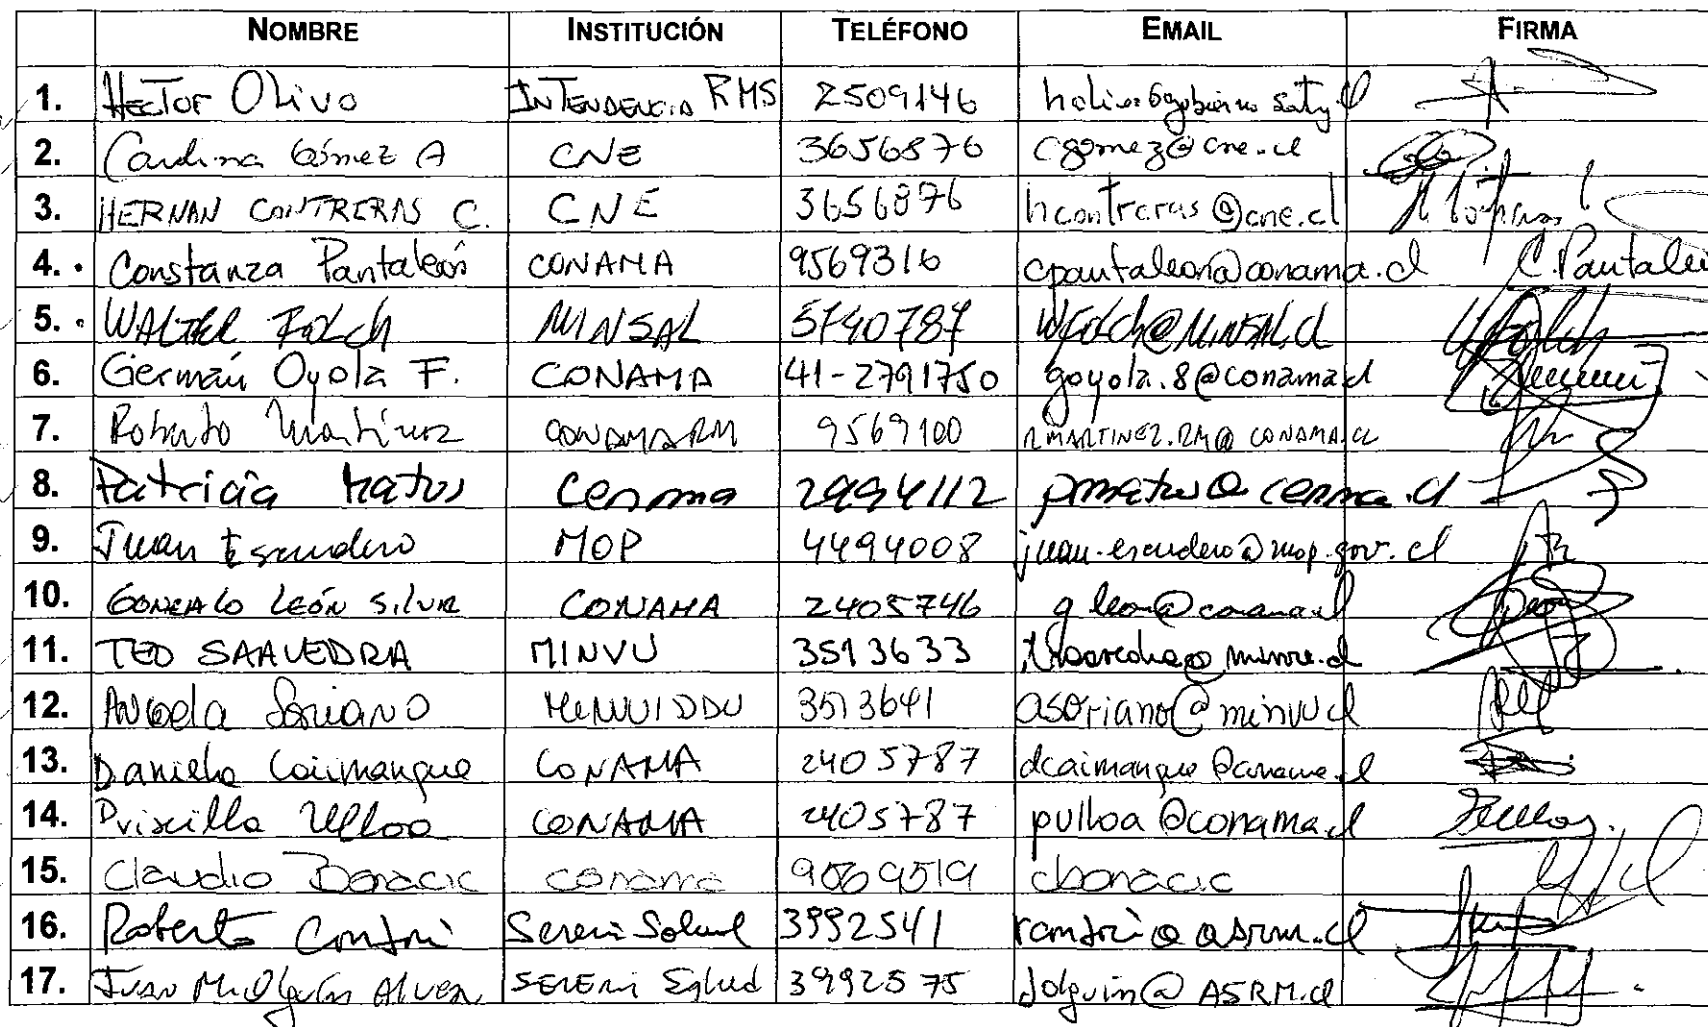 NOMBRE INSTITUCIÓN TELÉFONO EMAIL FIRMA
1. Hector Olivo INTENDENCIA RMS 2509146
2. Gómez A CNE 3656876 cgomez@cne.cl
3. HERNAN CONTRERAS C. CNE 3656876 hcontreras@cne.cl
4. Constanza Pantaleón CONAMA 9569316 cpantaleon@conama.cl C. Pantaleó
5. WALTER FOLCH MINSAL 5740787 WFolch@MINSAL.cl
6. Germán Oyola F. CONAMA 41-2791750 goyola.8@conama.cl
7. Roberto Martínez CONAMA RM 9569100 RMARTINEZ.RM@CONAMA.CL
8. Patricia Matus Cenma 2994112 pmatus@cenma.cl
9. Juan Escudero MOP 4494008 juan.escudero@mop.gov.cl
10. GONZALO LEÓN SILVA CONAMA 2405746
11. TEO SAAVEDRA MINVU 3513633
12. Angela Soriano MINVU DDU 3513641 asoriano@minvu.cl
13. Daniela Caimanque CONAMA 2405787 dcaimanque@conama.cl
14. Priscilla Ulloa CONAMA 2405787 pulloa@conama.cl
15. Claudio Bonacic conama 9569519 cbonacic
16. Roberto Seremi Salud 3992541
17. Juan M. Olguín SEREMI Salud 3992575 Jolguin@ASRM.cl